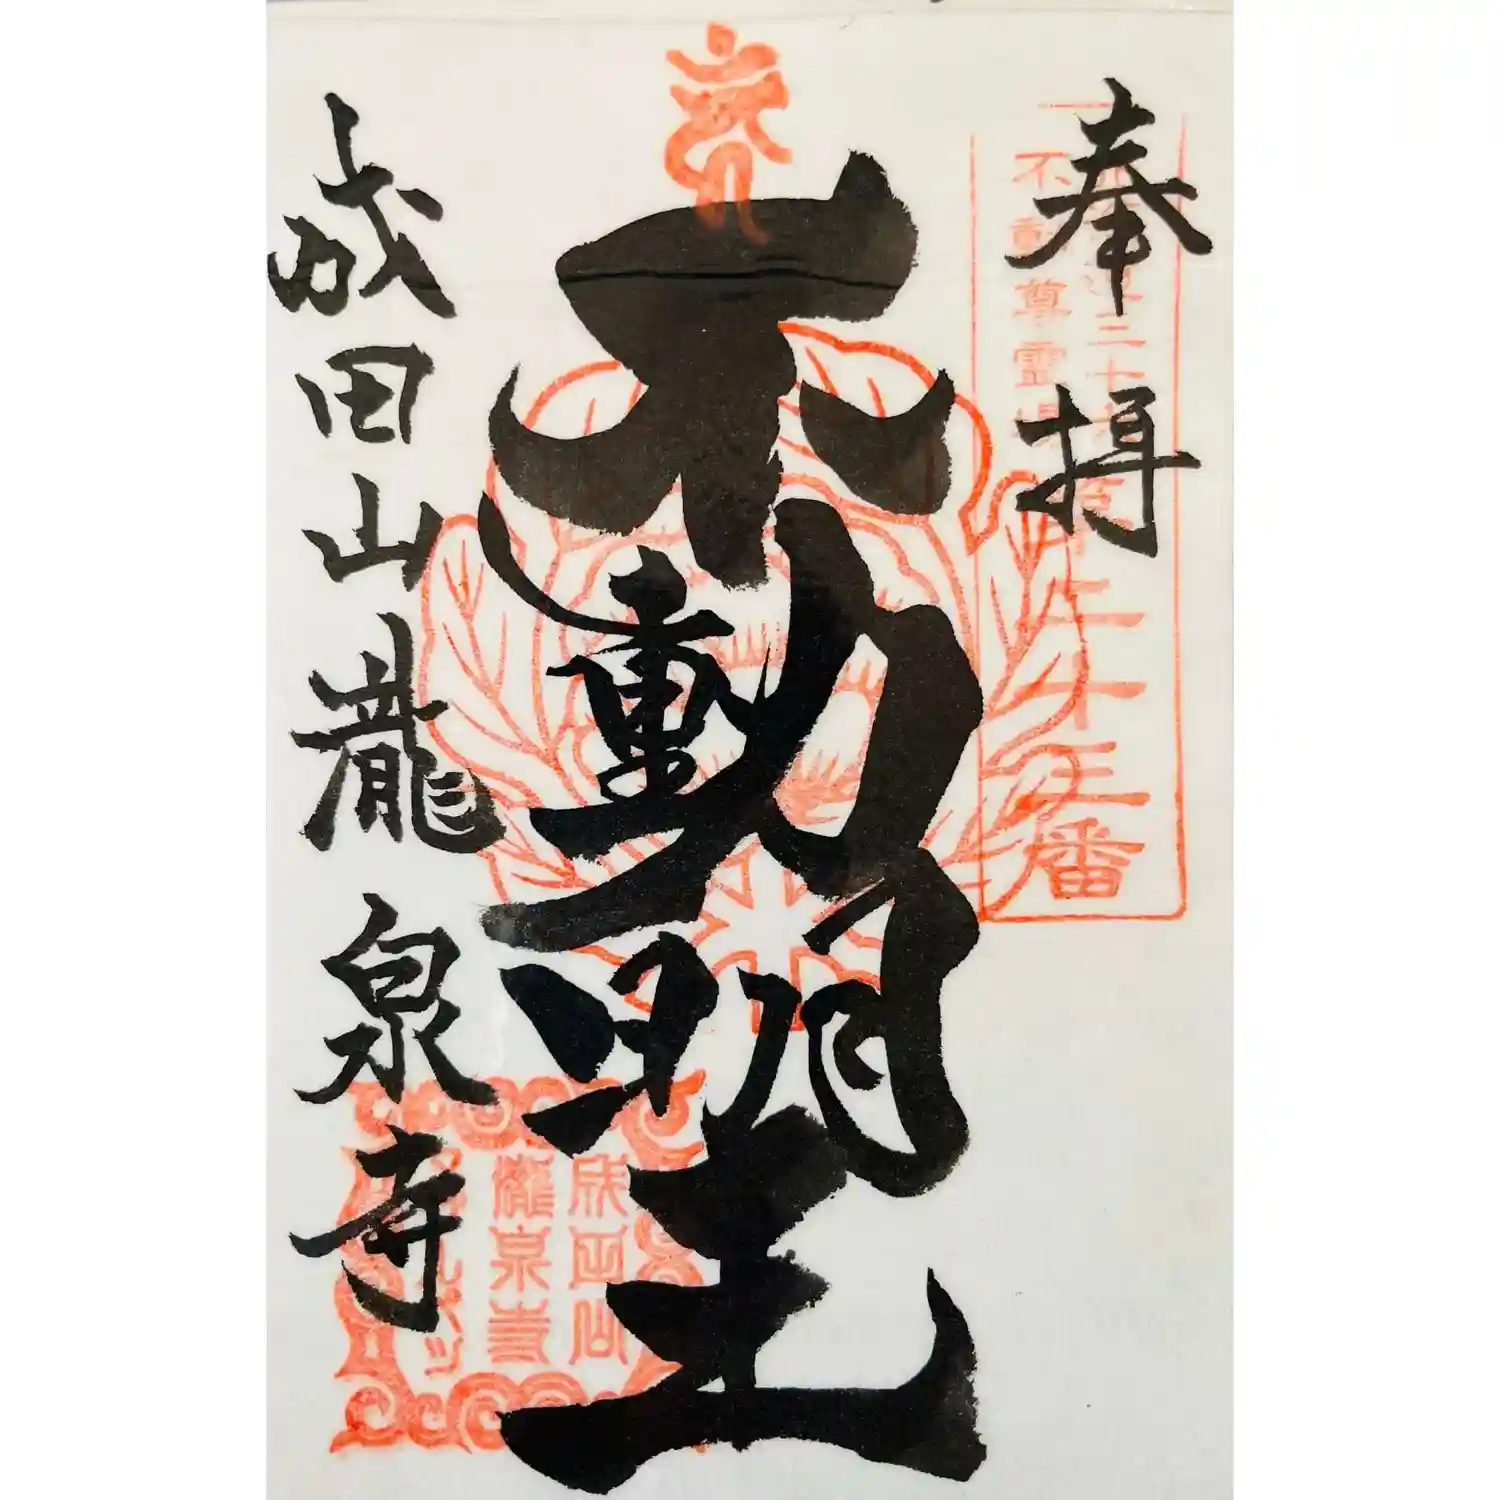 奉拝
不動明王
成田山瀧泉寺
不動尊霊場
二十五番
成田山
瀧泉寺